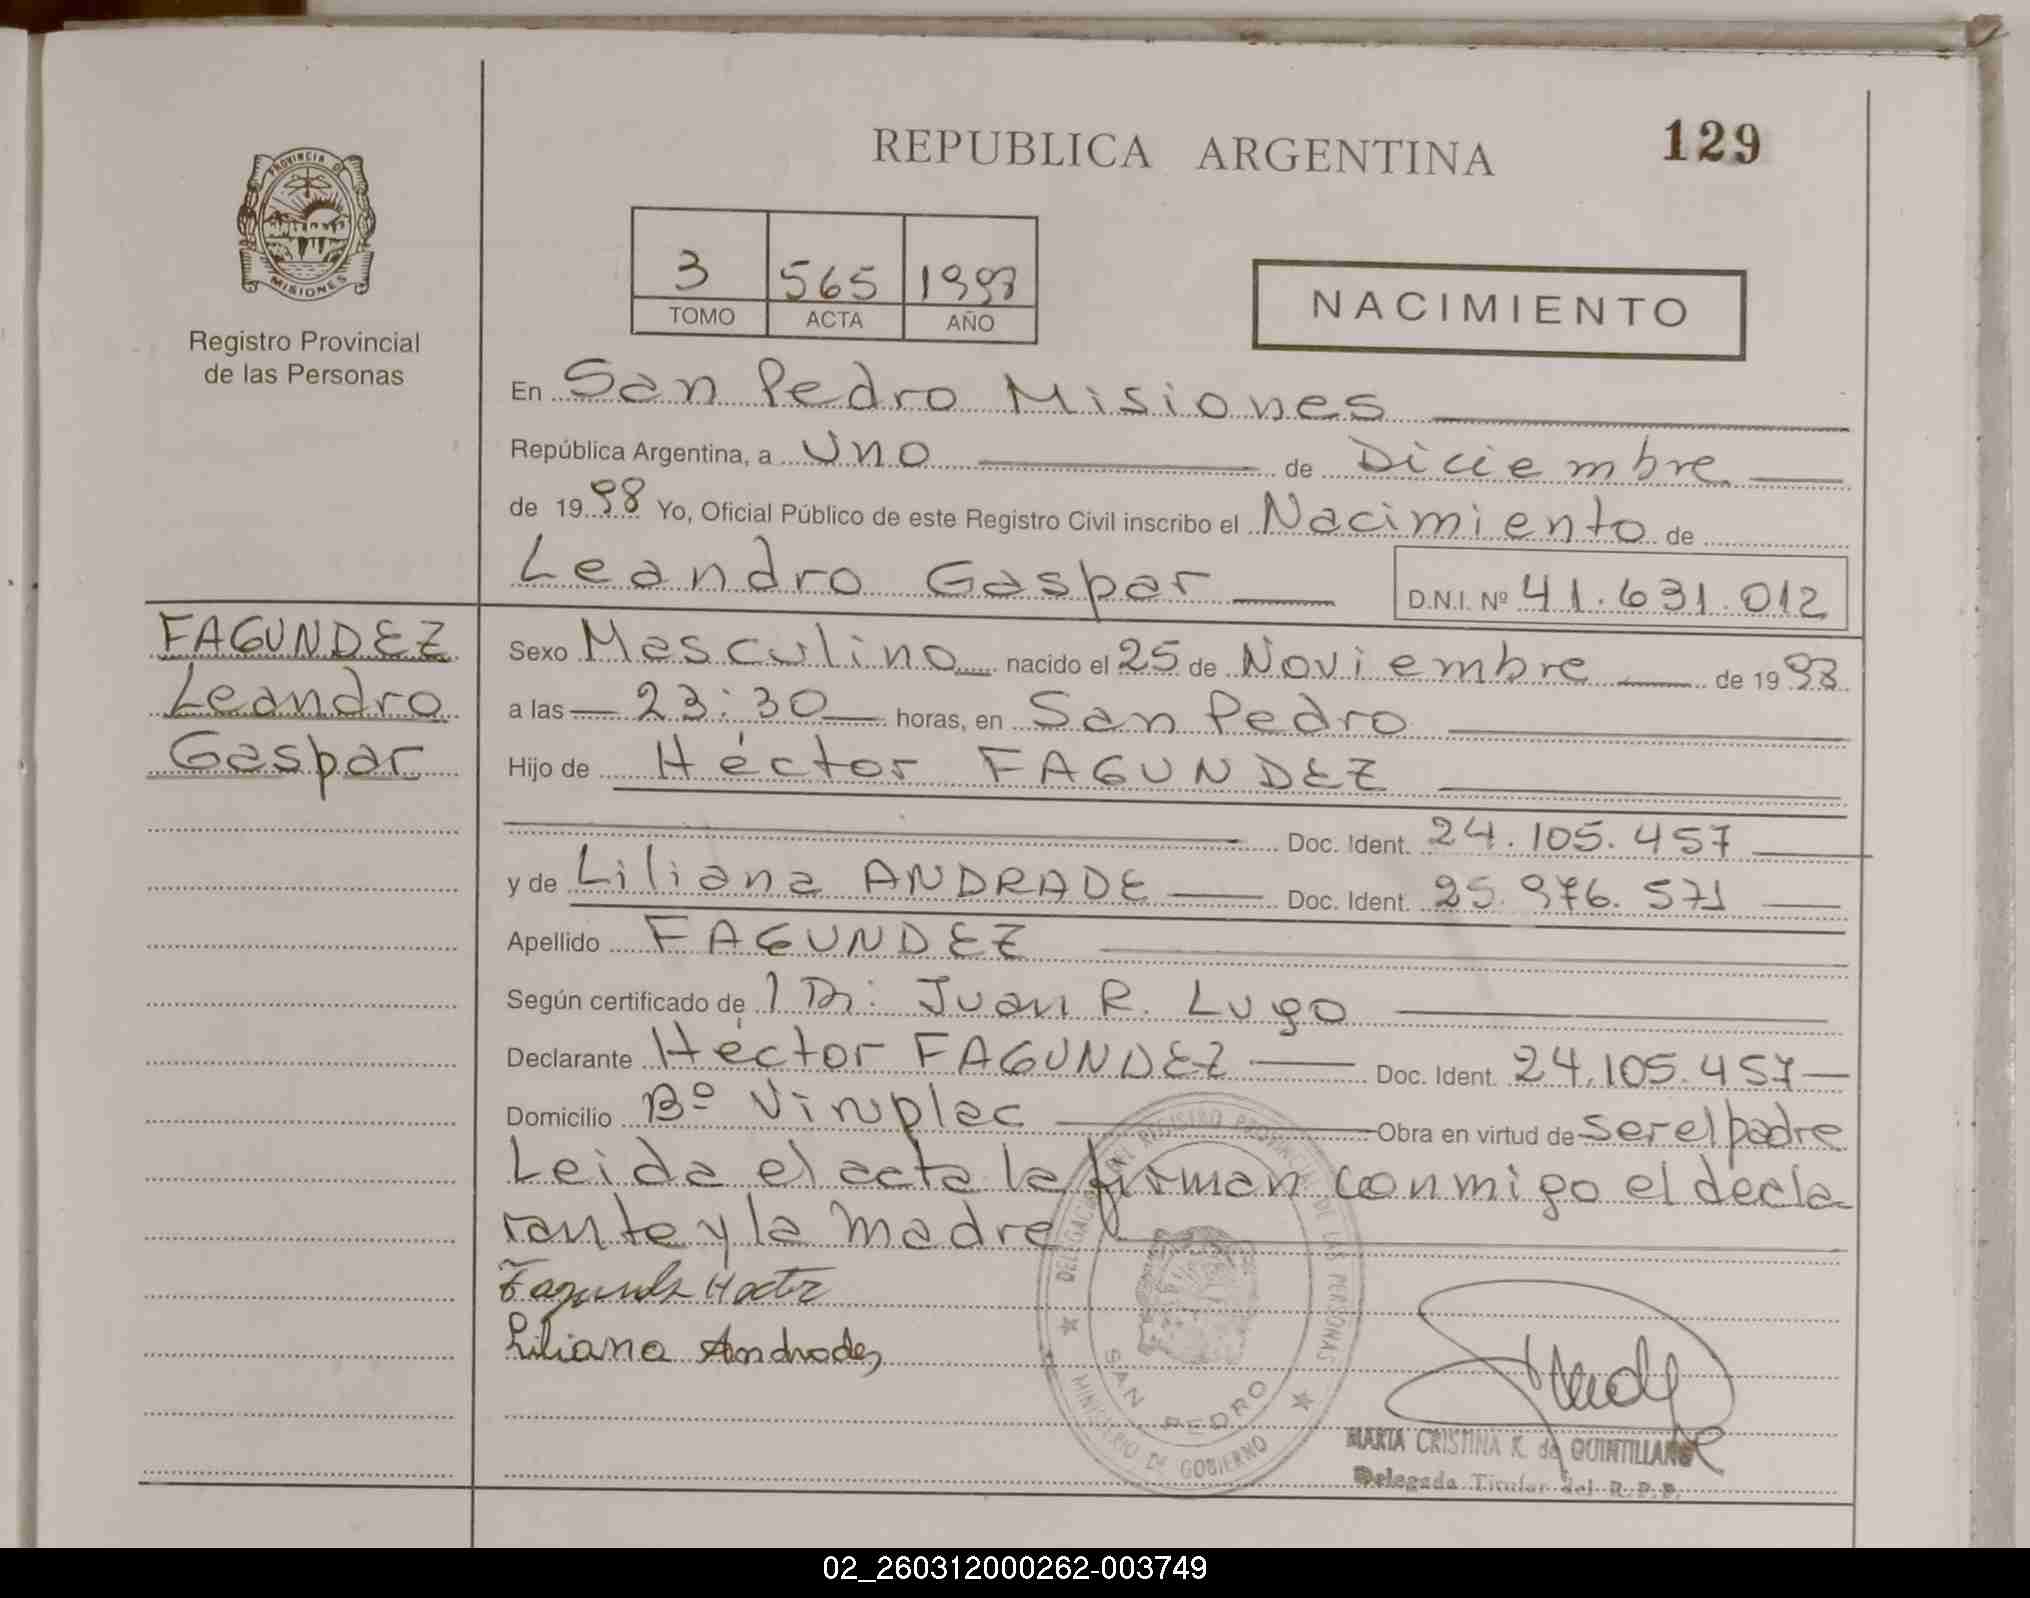 REPUBLICA ARGENTINA
129
PROVINCIA DE
MISIONES
Registro Provincial
de las Personas
3 565 1998
TOMO ACTA AÑO
NACIMIENTO
En San Pedro Misiones
República Argentina, a Uno de Diciembre
de 19 98 Yo, Oficial Público de este Registro Civil inscribo el Nacimiento de
Leandro Gaspar D.N.I. Nº 41.631.012
FAGUNDEZ
Leandro
Gaspar
Sexo Masculino nacido el 25 de Noviembre de 19 98
a las 23:30 horas, en San Pedro
Hijo de Héctor FAGUNDEZ
Doc. Ident. 24.105.457
y de Liliana ANDRADE Doc. Ident. 25.976.571
Apellido FAGUNDEZ
Según certificado de Juan R. Lugo
Declarante Héctor FAGUNDEZ Doc. Ident. 24.105.457
Domicilio Bº Obra en virtud de ser el padre
Leida el acta la firman conmigo el decla
rante y la madre
Fagundez Hector
Liliana Andrade
DELEGACION DEL REGISTRO PROVINCIAL DE LAS PERSONAS
SAN PEDRO
MINISTERIO DE GOBIERNO
MARIA CRISTINA K. de QUINTILLANO
Delegada Titular del R.P.P.
02_260312000262-003749